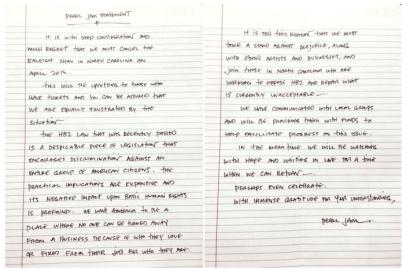 PEARL JAM STATEMENT
IT IS WITH DEEP CONSIDERATION AND
MUCH REGRET THAT WE MUST CANCEL THE
RALEIGH SHOW IN NORTH CAROLINA ON
APRIL 20TH.
THIS WILL BE UPSETTING TO THOSE WHO
HAVE TICKETS AND YOU CAN BE ASSURED THAT
WE ARE EQUALLY FRUSTRATED BY THE
SITUATION.
THE HB2 LAW THAT WAS RECENTLY PASSED
IS A DESPICABLE PIECE OF LEGISLATION THAT
ENCOURAGES DISCRIMINATION AGAINST AN
ENTIRE GROUP OF AMERICAN CITIZENS. THE
PRACTICAL IMPLICATIONS ARE EXPANSIVE AND
ITS NEGATIVE IMPACT UPON BASIC HUMAN RIGHTS
IS PROFOUND. WE WANT AMERICA TO BE A
PLACE WHERE NO ONE CAN BE TURNED AWAY
FROM A BUSINESS BECAUSE OF WHO THEY LOVE
OR FIRED FROM THEIR JOB FOR WHO THEY ARE.
IT IS FOR THIS REASON THAT WE MUST
TAKE A STAND AGAINST PREJUDICE, ALONG
WITH OTHER ARTISTS AND BUSINESSES, AND
JOIN THOSE IN NORTH CAROLINA WHO ARE
WORKING TO OPPOSE HB2 AND REPAIR WHAT
IS CURRENTLY UNACCEPTABLE.
WE HAVE COMMUNICATED WITH LOCAL GROUPS
AND WILL BE PROVIDING THEM WITH FUNDS TO
HELP FACILITATE PROGRESS ON THIS ISSUE.
IN THE MEANTIME WE WILL BE WATCHING
WITH HOPE AND WAITING IN LINE FOR A TIME
WHEN WE CAN RETURN.
PERHAPS EVEN CELEBRATE.
WITH IMMENSE GRATITUDE FOR YOUR UNDERSTANDING,
PEARL JAM